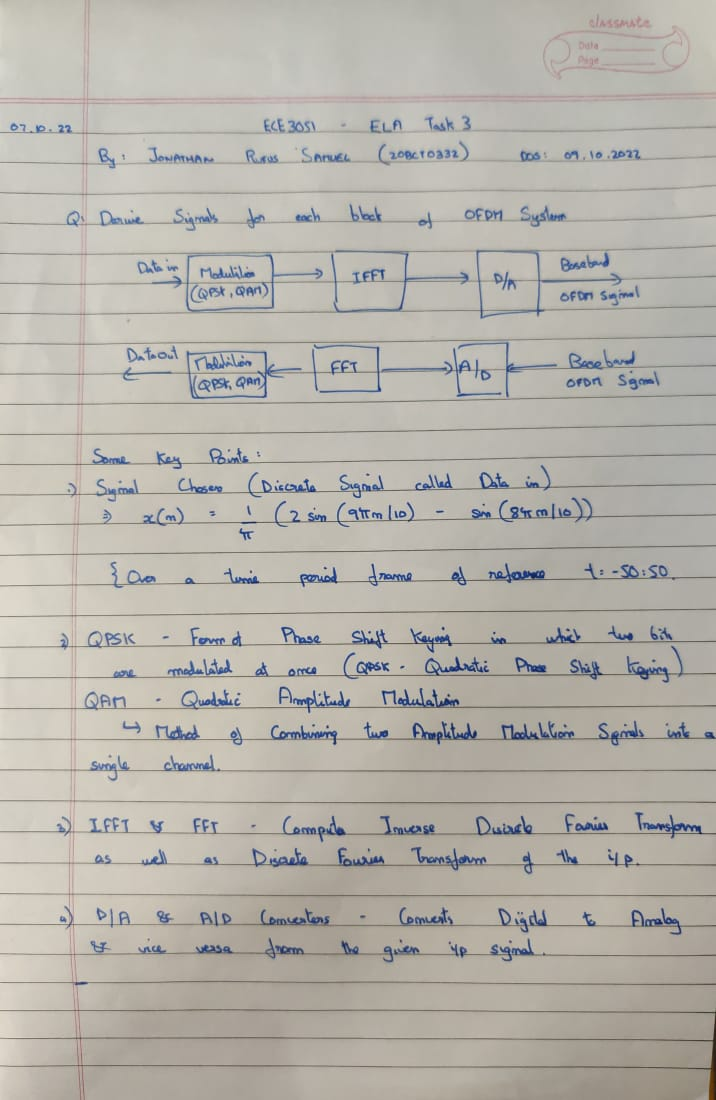 classmate
Date
Page
07.10.22 ECE3051 - ELA Task 3
By: JONATHAN RUFUS SAMUEL (20BCT0332) DOS: 09.10.2022
Q: Derive Signals for each block of OFDM System
Data in Modulation (QPSK, QAM) IFFT D/A Baseband OFDM Signal
Data out Modulation (QPSK, QAM) FFT A/D Baseband OFDM Signal
Some Key Points:
1) Signal Chosen (Discrete Signal called Data in)
⇒ x(n) = 1/π (2 sin (9πn/10) - sin (8πn/10))
{Over a time period frame of reference t = -50:50.
2) QPSK - Form of Phase Shift Keying in which two bits
are modulated at once (QPSK - Quadratic Phase Shift Keying)
QAM - Quadratic Amplitude Modulation
↳ Method of Combining two Amplitude Modulation Signals into a
single channel.
3) IFFT & FFT - Compute Inverse Discrete Fourier Transform
as well as Discrete Fourier Transform of the i/p.
4) D/A & A/D Converters - Converts Digital to Analog
& vice versa from the given i/p signal.